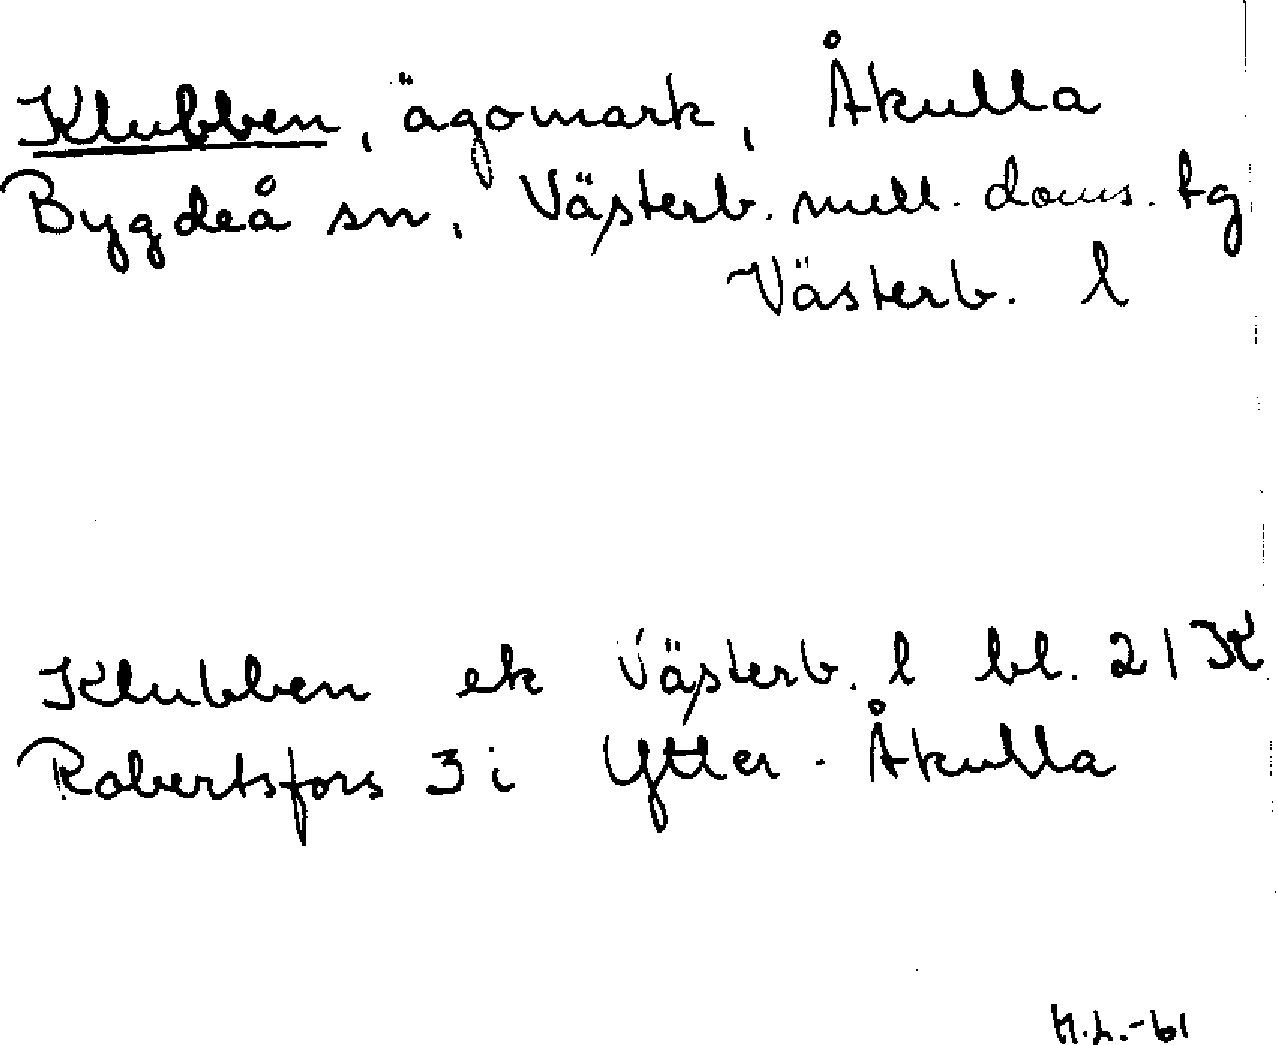 Klubben, ägomark, Åkulla
Bygdeå sn, Västerb. mell. doms. tg
Västerb. l
Klubben ek Västerb. l bl. 21 K
Robertsfors 3 i Ytter-Åkulla
H.L.-61